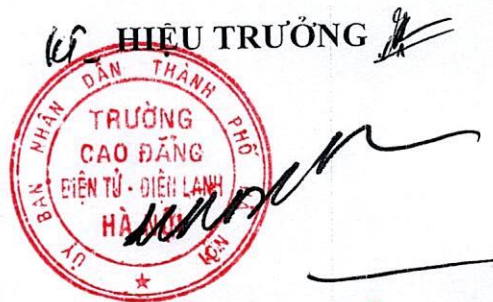 KT. HIỆU TRƯỞNG
ỦY BAN NHÂN DÂN THÀNH PHỐ HÀ NỘI
TRƯỜNG
CAO ĐẲNG
ĐIỆN TỬ - ĐIỆN LẠNH
HÀ NỘI